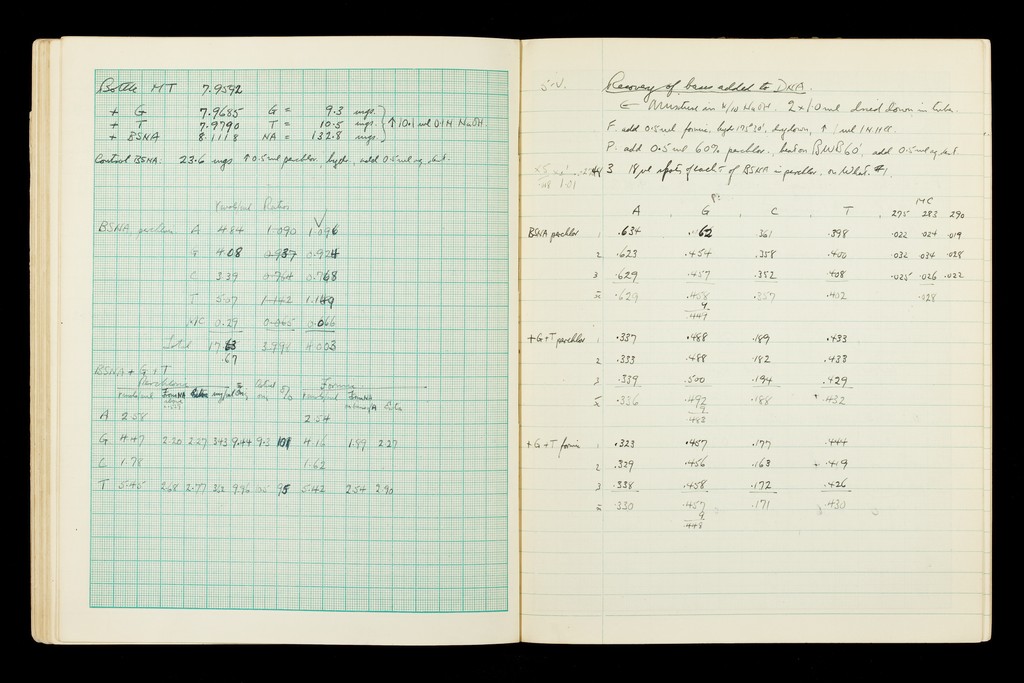 Bottle MT 7.9592
+ G 7.9685 G = 9.3 mgs.
+ T 7.9790 T = 10.5 mgs. ↑10.1 ml 0.1 N NaOH.
+ BSNA 8.1118 NA = 132.8 mgs.
Control BSNA. 23.6 mgs ↑0.5 ml perchlor. hydr., add 0.5 ml
Ratios
BSNA A 4.84 1.090 1.096
4.08 0.924
C 3.39 0.764 0.768
T 5.07 1.142 1.149
0.29 0.065 0.066
Total 17.63 4.003
.67
BSNA + G + T
Perchloric Formic
A 2.58 2.54
G 4.47 2.20 2.27 343 9.44 9.3 101 4.16 1.89 2.27
C 1.78 1.62
T 5.45 2.68 2.77 9.96 95 5.42 2.54 2.90
Recovery of bases added to DNA.
Mixture in N/10 NaOH. 2 x 1.0 ml dried down in tube.
F. add 0.5 ml formic, hydr 175° 30', dry down, ↑ 1 ml 1 N HCl
P. add 0.5 ml 60% perchlor., heat on BWB 60', add 0.5 ml
3 18 µl spots of each of BSNA in perchlor. on What. #1.
MC
A G C T 275 283 290
BSNA perchlor 1 .634 .62 .361 .398 .022 .024 .019
2 .623 .454 .358 .400 .032 .034 .028
3 .629 .457 .352 .408 .025 .026 .022
x̄ .629 .458 .357 .402 .028
9
.449
+G+T perchlor 1 .337 .488 .189 .433
2 .333 .488 .182 .433
3 .339 .500 .194 .429
x̄ .336 .492 .188 .432
9
.483
+G+T formic 1 .323 .457 .177 .444
2 .329 .456 .163 .419
3 .338 .458 .172 .426
x̄ .330 .457 .171 .430
9
.448